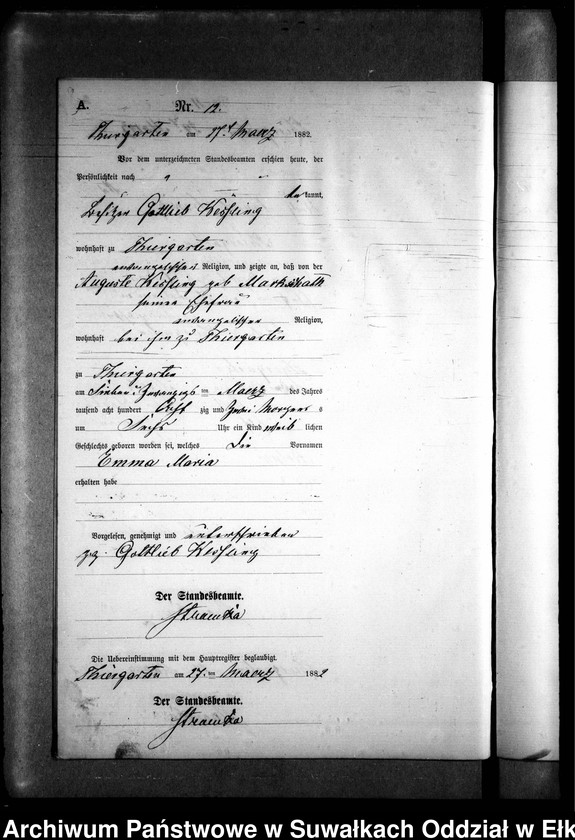 A. Nr. 12.
Thiergarten am 27t Maerz 1882.
Vor dem unterzeichneten Standesbeamten erschien heute, der
Persönlichkeit nach
be kannt,
Besitzer Gottlieb Keßling
wohnhaft zu Thiergarten
evangelischer Religion, und zeigte an, daß von der
Auguste Keßling geb
seiner Ehefrau
evangelischer Religion,
wohnhaft bei ihm zu Thiergarten
zu Thiergarten
am Sieben u Zwanzigs ten Maerz des Jahres
tausend acht hundert Acht zig und Zwei Morgens s
um Sechs Uhr ein Kind weib lichen
Geschlechts geboren worden sei, welches die Vornamen
Emma Maria
erhalten habe
Vorgelesen, genehmigt und unterschrieben
gez. Gottlieb Keßling
Der Standesbeamte.
Die Uebereinstimmung mit dem Hauptregister beglaubigt.
Thiergarten am 27. ten Maerz 1882
Der Standesbeamte.
Archiwum Państwowe w Suwałkach Oddział w Ełk